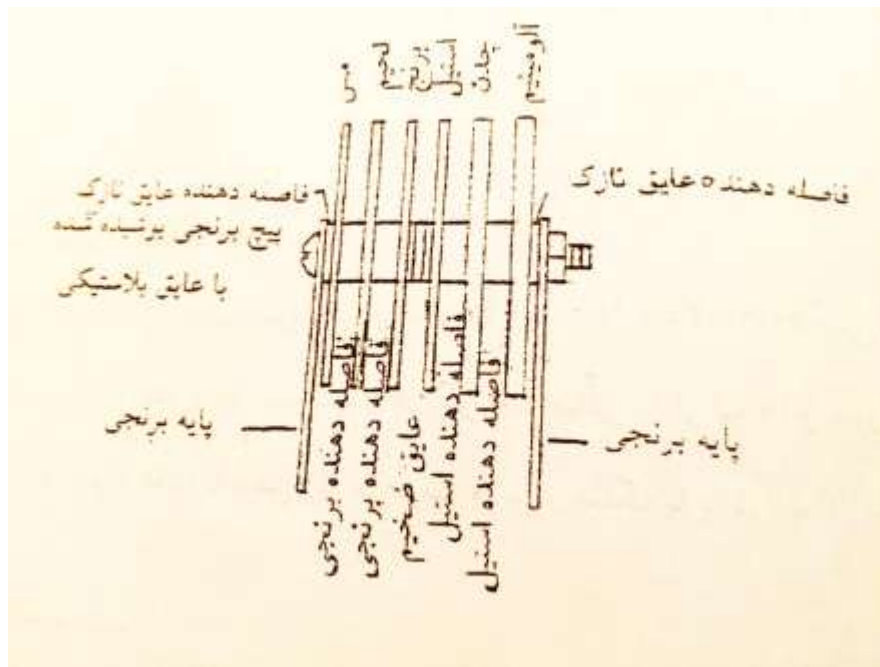 مس
لحیم
برنج
استیل
چدن
آلومینیم
فاصله دهنده عایق نازک
پیچ برنجی پوشیده شده
با عایق پلاستیکی
فاصله دهنده عایق نازک
پایه برنجی
فاصله دهنده برنجی
فاصله دهنده برنجی
عایق ضخیم
فاصله دهنده استیل
فاصله دهنده استیل
پایه برنجی